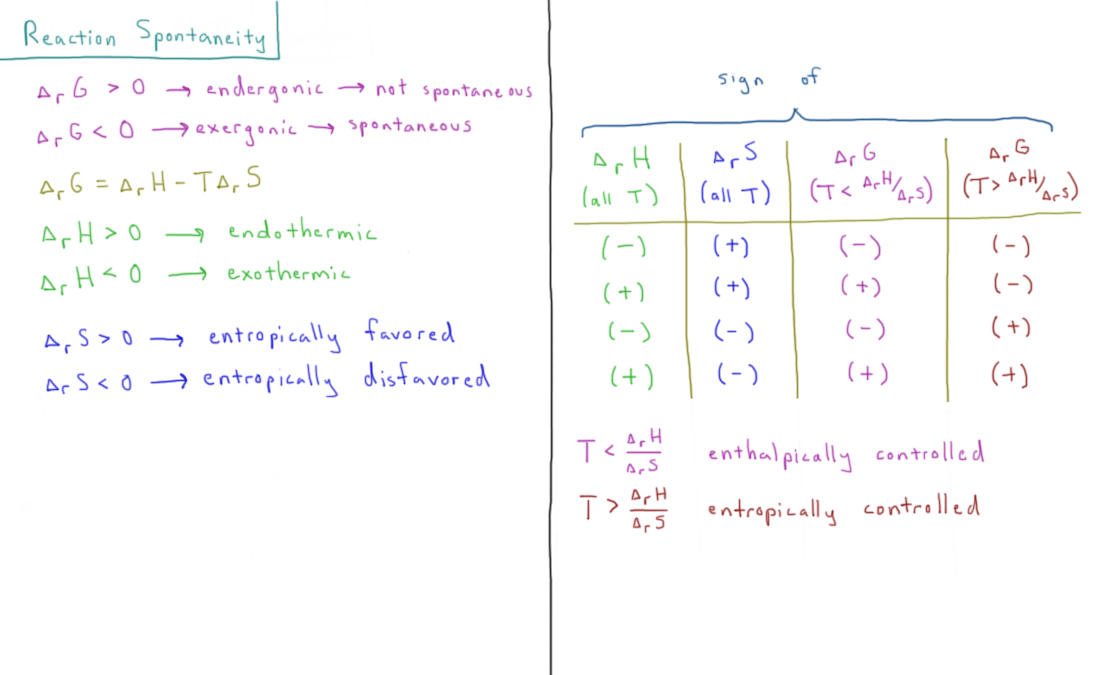 Reaction Spontaneity
ΔᵣG > 0 → endergonic → not spontaneous
ΔᵣG < 0 → exergonic → spontaneous
ΔᵣG = ΔᵣH - TΔᵣS
ΔᵣH > 0 → endothermic
ΔᵣH < 0 → exothermic
ΔᵣS > 0 → entropically favored
ΔᵣS < 0 → entropically disfavored
sign of
ΔᵣH ΔᵣS ΔᵣG ΔᵣG
(all T) (all T) (T < ΔᵣH/ΔᵣS) (T > ΔᵣH/ΔᵣS)
(-) (+) (-) (-)
(+) (+) (+) (-)
(-) (-) (-) (+)
(+) (-) (+) (+)
T < ΔᵣH/ΔᵣS enthalpically controlled
T > ΔᵣH/ΔᵣS entropically controlled